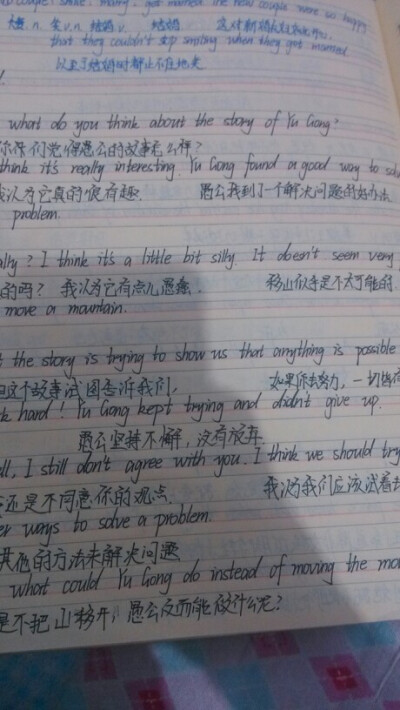 couple, smile, marry, get married the new couple were so happy
大婚. n. 夫 v.n. 结婚 v. 结婚
that they couldn't stop smiling when they got married
以至于结婚时都止不住地笑
what do you think about the story of Yu Gong?
你们觉得愚公的故事怎么样?
think it's really interesting. Yu Gong found a good way to sol
我认为它真的很有趣. 愚公找到了一个解决问题的好办法
problem.
ally? I think it's a little bit silly It doesn't seem very
的吗? 我认为它有点儿愚蠢. 移山似乎是不太可能的
move a mountain.
t the story is trying to show us that anything is possible
这个故事试图告诉我们, 如果你去努力, 一切皆有
k hard! Yu Gong kept trying and didn't give up.
愚公坚持不懈, 没有放弃
ll, I still don't agree with you. I think we should try
还是不同意你的观点 我认为我们应该试着去
er ways to solve a problem.
其他的方法来解决问题
what could Yu Gong do instead of moving the mou
是不把山移开, 愚公反而能做什么呢?